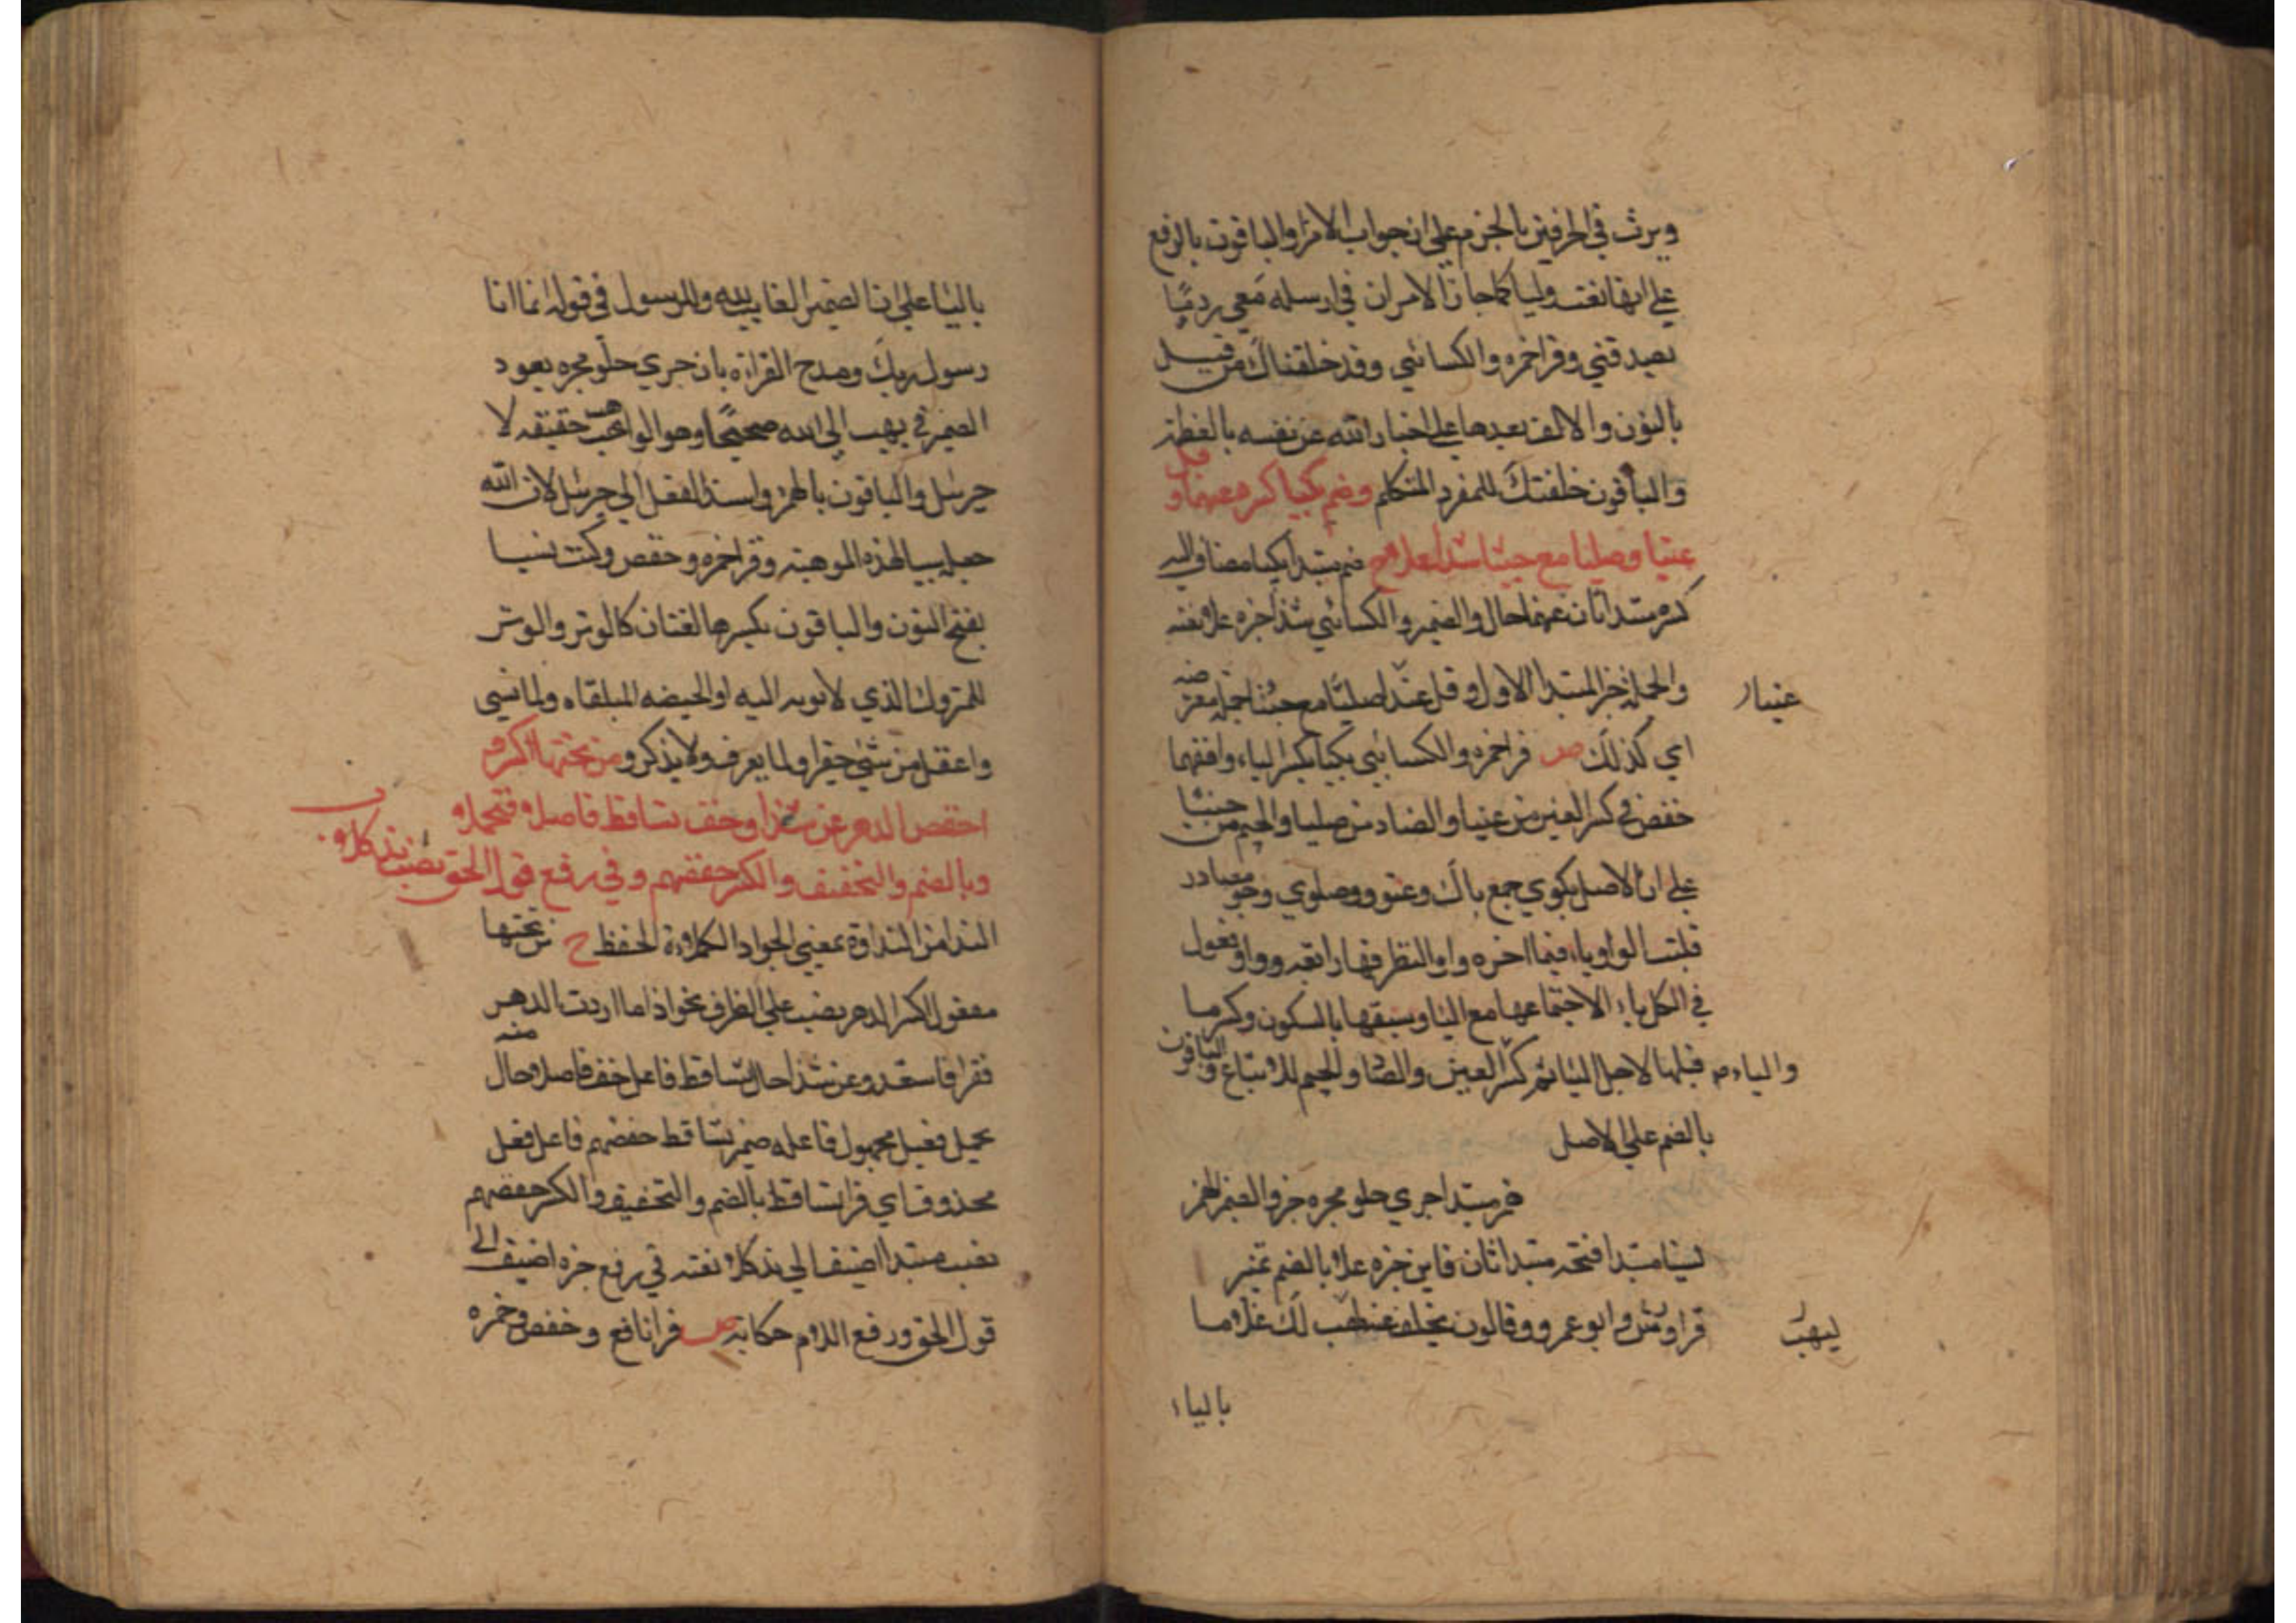 ويرث في الحرفين بالجزم علي ان جواب الامر والباقون بالرفع
علي انها نعت وليا كما جاز الامران في ارسله معي ردءا
يصدقني وقرا حمزه والكسائي وقد خلقناك من قبل
بالنون والالف بعدها علي اخبار الله عن نفسه بالعظمة
والباقون خلقتك للمفرد المتكلم وضم بكيا كسره عنهما وقل
عتيا وصليا مع جثيا شذا علا ح ضم مبتدا بكيا مضاف اليه
كسره مبتدا ثان عنهما حال والضمير والكسائي شذا خبره علا نعته
والجملة خبر المبتدا الاول وقل عتيا صليا مع جثيا جملة معترضه
عتيا
اي كذلك ص قرا حمزه والكسائي بكيا بكسر الباء وافقهما
حفص في كسر العين من عتيا والصاد من صليا والجيم من جثيا
علي ان الاصل بكوي جمع باك وعتوو وصلوي وجثو مصادر
قلبت الواو ياء فيما اخره واو النظر فها رابعه وواو فعول
في الكل ياء الاجتماعها مع اليا وسبقها بالسكون وكسر ما
قبلها لاجل اليا ثم كسر العين والصاد والجيم للاتباع والباقون
والباء م
بالضم علي الاصل
همز مبتدا جري حلو بحره خبر والضمير للهمز
نسيا مبتدا فتحه مبتدا ثان فايز خبره علا بالضم تمييز
قرا ورش وابو عمرو وقالون بخلف عنه ليهب لك غلاما
ليهب
بالياء
بالياء علي ان الضمير الغايب لله والرسول في قوله انما انا
رسول ربك ومدح القراءة بان جري حلو بحره يعود
الضمير في يهب الي الله صحيحا وهو الواهب حقيقه لا
جبرئل والباقون بالهمز واسند الفعل الي جبرئل لان الله
جعله سببا لهذه الموهبة وقرا حمزه وحفص وكنت نسيا
بفتح النون والباقون بكسرها لغتان كالوتر والوتر
للمتروك الذي لا يوبه اليه او الحيضه الملقاه ولما نسي
واغفل من شئ حقير او لما يعرف ولا يذكر ومن تحتها اكسر و
اخفض الدهر عن شذا وخف تساقط فاصلا فتحملا و
وبالضم والتخفيف والكسر حفصهم وفي رفع قول الحق نصب ند كلا
الندا من النداوة بمعني الجواد الكلاءة الحفظ ح من تحتها
مفعول اكسر الدهر نصب علي الظرف نحو اذا ما اردت الدهر
تقرا فاستعد وعن شذا حال تساقط فاعل خف فاصلا حال
تحمل فعيل مجهول فاعله ضمير تساقط حفصهم فاعل فعل
محذوف اي قرا تساقط بالضم والتخفيف والكسر حفصهم
نصب مبتدا اضيف الي ند كلا نعته في رفع خبره اضيف الي
قول الحق ورفع اللام حكاية ص قرا نافع وحفص وحمزه